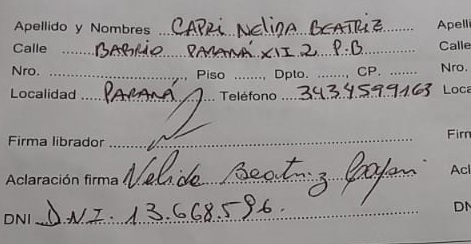 Apellido y Nombres CAPRI NELIDA BEATRIZ Apelli
Calle BARRIO PARANÁ XII 2 P.B Calle
Nro. ........, Piso ......, Dpto. ......., CP. ...... Nro.
Localidad PARANÁ Teléfono 3434599163 Loca
Firma librador Firm
Aclaración firma Nelida Beatriz Capri Acl
DNI D.N.I. 13.668.596. DN